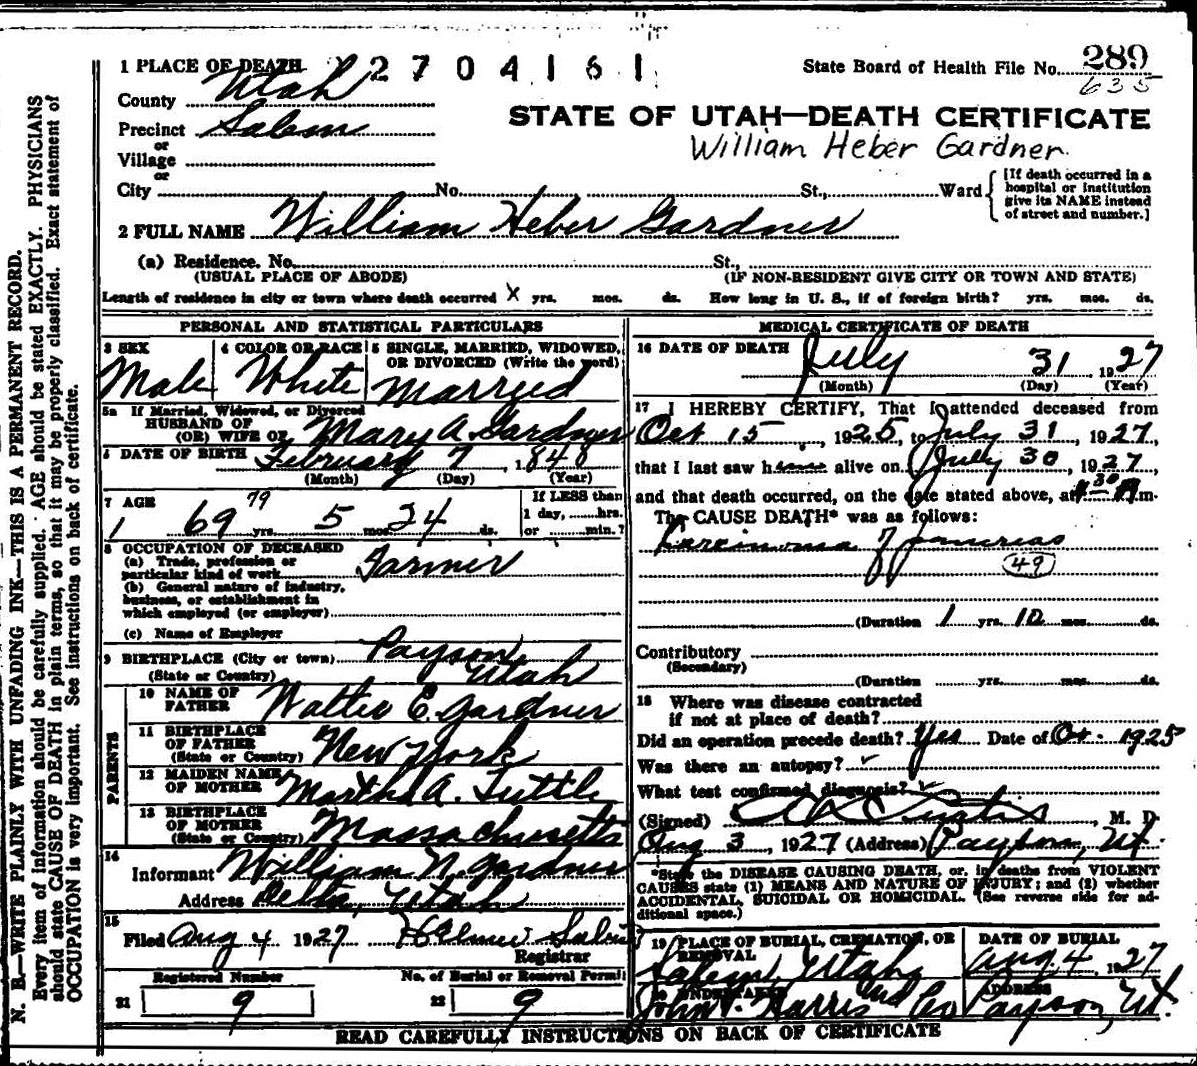 1 PLACE OF DEATH 2704161 State Board of Health File No. 289
635
County Utah
STATE OF UTAH—DEATH CERTIFICATE
Precinct Salem
William Heber Gardner
or
Village
or
City No. St., Ward
[If death occurred in a hospital or institution give its NAME instead of street and number.]
2 FULL NAME William Heber Gardner
(a) Residence. No. St.,
(USUAL PLACE OF ABODE) (IF NON-RESIDENT GIVE CITY OR TOWN AND STATE)
Length of residence in city or town where death occurred X yrs. mos. ds. How long in U. S., if of foreign birth? yrs. mos. ds.
PERSONAL AND STATISTICAL PARTICULARS
3 SEX 4 COLOR OR RACE 5 SINGLE, MARRIED, WIDOWED, OR DIVORCED (Write the word)
Male White Married
5a If Married, Widowed, or Divorced
HUSBAND OF
(OR) WIFE OF Mary A. Gardner
6 DATE OF BIRTH February 7, 1848
(Month) (Day) (Year)
7 AGE 79 If LESS than
1 day, hrs.
69 yrs. 5 mos. 24 ds. or min.?
8 OCCUPATION OF DECEASED
(a) Trade, profession or
particular kind of work Farmer
(b) General nature of industry,
business, or establishment in
which employed (or employer)
(c) Name of Employer
9 BIRTHPLACE (City or town) Payson
(State or Country) Utah
PARENTS
10 NAME OF
FATHER Walter E. Gardner
11 BIRTHPLACE
OF FATHER
(State or Country) New York
12 MAIDEN NAME
OF MOTHER Martha A. Tuttle
13 BIRTHPLACE
OF MOTHER
(State or Country) Massachusetts
14
Informant William N. Gardner
Address Delta, Utah
15
Filed Aug 4 1927
Registrar
Registered Number No. of Burial or Removal Permit
21 9 22 9
MEDICAL CERTIFICATE OF DEATH
16 DATE OF DEATH July 31, 1927
(Month) (Day) (Year)
17 I HEREBY CERTIFY, That I attended deceased from
Oct 15, 1925, to July 31, 1927,
that I last saw h alive on July 30, 1927,
and that death occurred, on the date stated above, at m.
The CAUSE DEATH* was as follows:
Carcinoma of pancreas
49
(Duration 1 yrs. 10 mos. ds.
Contributory
(Secondary)
(Duration yrs. mos. ds.
18 Where was disease contracted
if not at place of death?
Did an operation precede death? Yes Date of Oct. 1925
Was there an autopsy?
What test confirmed diagnosis?
(Signed) Curtis, M. D.
Aug 3, 1927 (Address) Payson, Ut.
*State the DISEASE CAUSING DEATH, or, in deaths from VIOLENT
CAUSES state (1) MEANS AND NATURE OF INJURY; and (2) whether
ACCIDENTAL, SUICIDAL OR HOMICIDAL. (See reverse side for ad-
ditional space.)
19 PLACE OF BURIAL, CREMATION, OR
REMOVAL DATE OF BURIAL
Salem Utah Aug. 4, 1927
20 UNDERTAKER ADDRESS
John T. Harris and Co Payson, Ut.
READ CAREFULLY INSTRUCTIONS ON BACK OF CERTIFICATE
N. B.—WRITE PLAINLY WITH UNFADING INK—THIS IS A PERMANENT RECORD.
Every item of information should be carefully supplied. AGE should be stated EXACTLY. PHYSICIANS
should state CAUSE OF DEATH in plain terms, so that it may be properly classified. Exact statement of
OCCUPATION is very important. See instructions on back of certificate.